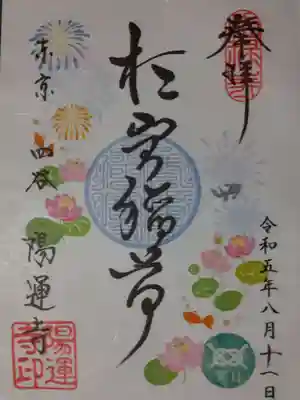 奉拝
令和五年八月十一日
於岩稲荷
東京 四谷 陽運寺
陽運
寺印